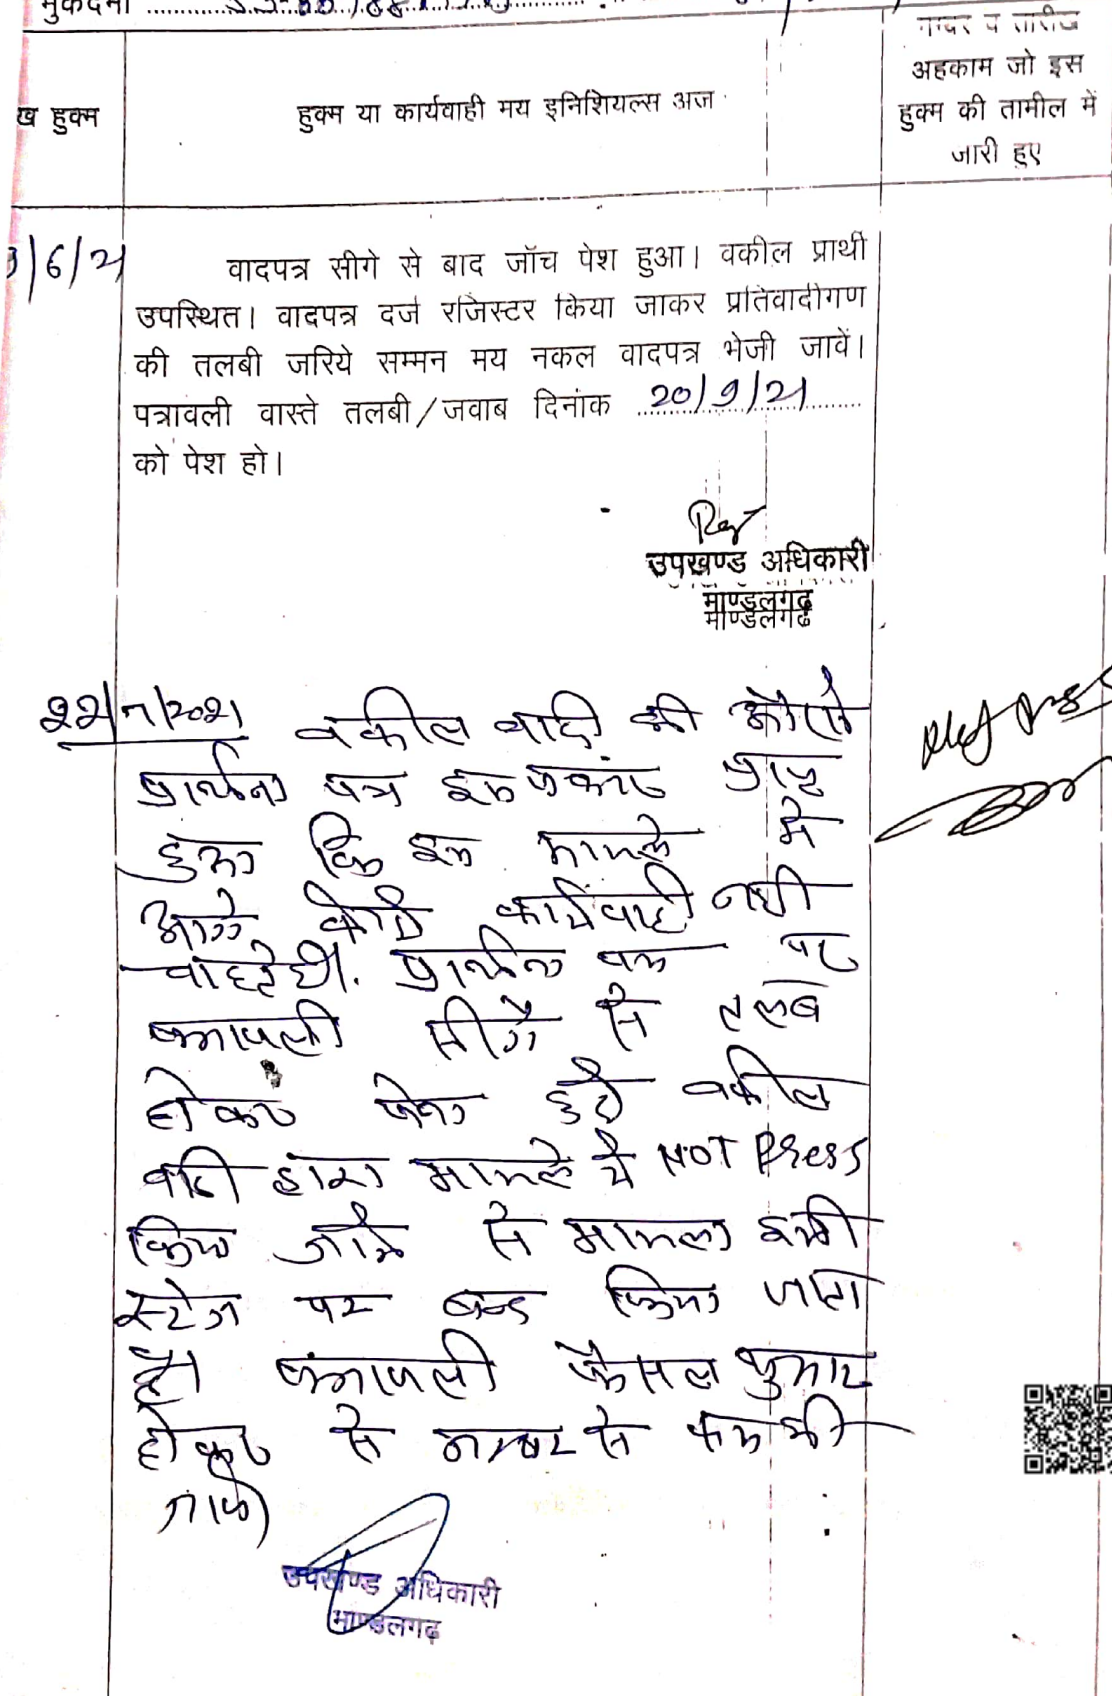 मुकदमा
नम्बर व तारीख
अहकाम जो इस
हुक्म की तामील में
जारी हुए
ख हुक्म
हुक्म या कार्यवाही मय इनिशियल्स अज
/6/21
वादपत्र सीगे से बाद जॉच पेश हुआ। वकील प्रार्थी
उपस्थित। वादपत्र दर्ज रजिस्टर किया जाकर प्रतिवादीगण
की तलबी जरिये सम्मन मय नकल वादपत्र भेजी जावें।
पत्रावली वास्ते तलबी/जवाब दिनांक 20/9/21
को पेश हो।
उपखण्ड अधिकारी
माण्डलगढ़
माण्डलगढ
22/7/2021 वकील वादी की ओर से
प्रार्थना पत्र इस प्रकार प्राप्त
हुआ कि इस मामले में
आगे कोई कार्यवाही नही
चाहते है. प्रार्थना पत्र पर
पत्रावली सीगे से तलब
होकर पेश हुई वकील
वादी द्वारा मामले में NOT Press
किया जाने से मामला इसी
स्टेज पर बन्द किया जाता
है। पत्रावली फैसल शुमार
होकर से नम्बर से कम की
जावे।
उपखण्ड अधिकारी
माण्डलगढ़